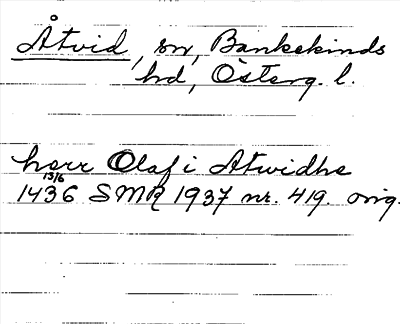 Åtvid, sn, Bankekinds
hd, Österg. l.
herr Olaf i Atwidhe
13/6
1436 SMR 1937 nr. 419. orig.